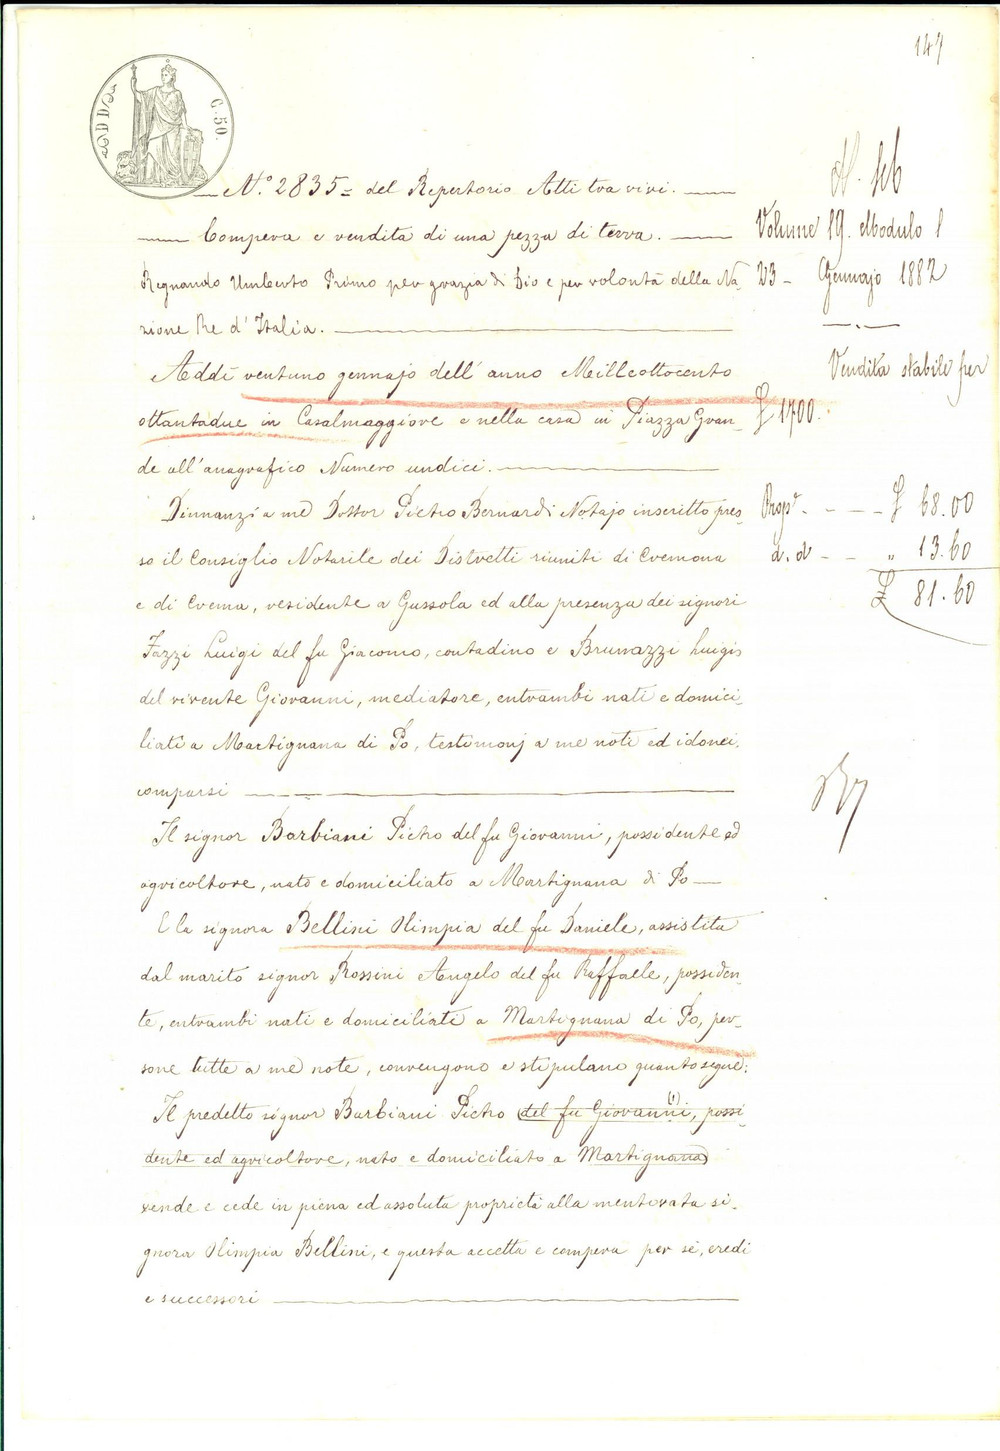 147
C. 50.
N.° 2835 = del Repertorio Atti tra vivi.
Compera e vendita di una pezza di terra.
Regnando Umberto Primo per grazia di Dio e per volontà della Na-
zione Re d'Italia.
Addì ventuno gennajo dell'anno Milleottocento
ottantadue in Casalmaggiore e nella casa in Piazza Gran-
de all'anagrafico Numero undici.
Dinnanzi a me Dottor Pietro Bernardi Notajo inscritto pres-
so il Consiglio Notarile dei Distretti riuniti di Cremona
e di Crema, residente a Gussola ed alla presenza dei signori
Fazzi Luigi del fu Giacomo, contadino e Brunazzi Luigi
del vivente Giovanni, mediatore, entrambi nati e domici-
liati a Martignana di Po, testimonj a me noti ed idonei.
comparsi
Il signor Barbiani Pietro del fu Giovanni, possidente ed
agricoltore, nato e domiciliato a Martignana di Po
E la signora Bellini Olimpia del fu Daniele, assistita
dal marito signor Rossini Angelo del fu Raffaele, possiden-
te, entrambi nati e domiciliati a Martignana di Po, per-
sone tutte a me note, convengono e stipulano quanto segue:
Il predetto signor Barbiani Pietro (del fu Giovanni, possi-
dente ed agricoltore, nato e domiciliato a Martignana)
vende e cede in piena ed assoluta proprietà alla mentovata si-
gnora Olimpia Bellini, e questa accetta e compera per sé, eredi
e successori
Volume 19. Modulo 1
23 - Gennajo 1882
Vendita stabile per
£ 1700.
Prop.ª - - - - £ 68.00
d. d - - " 13.60
£ 81.60